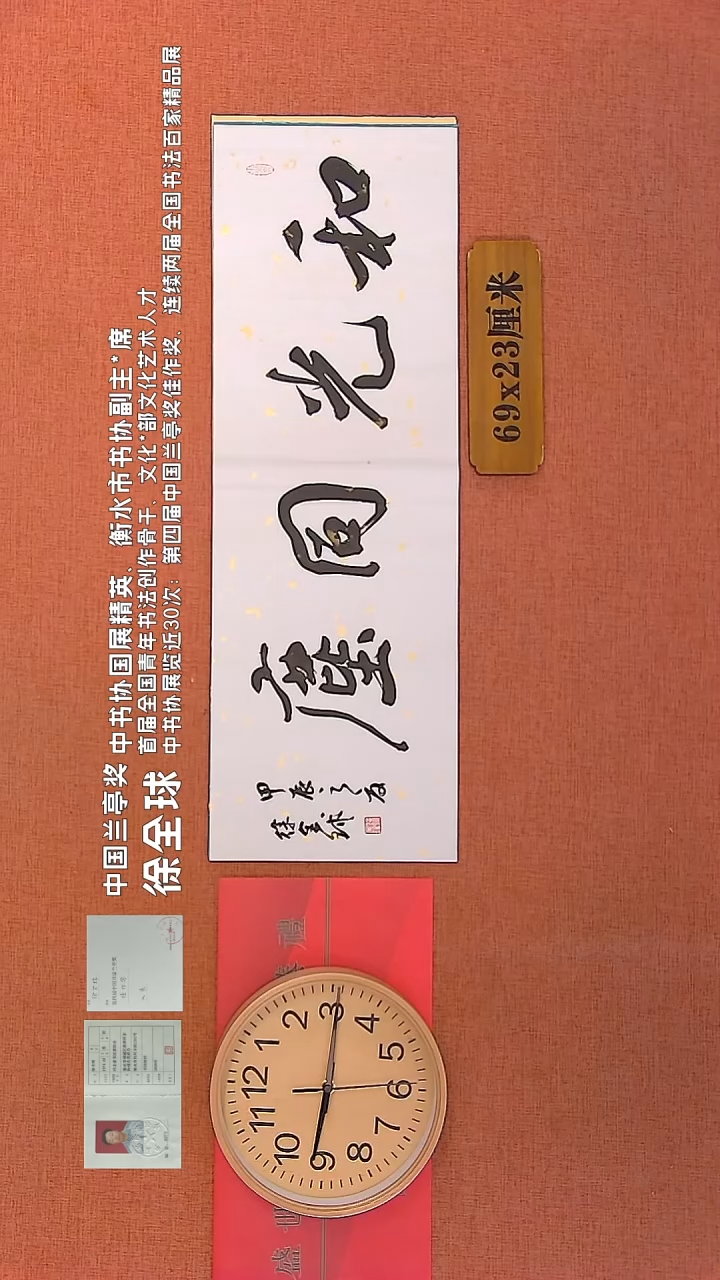 中国兰亭奖 中书协国展精英、衡水市书协副主*席
徐全球 首届全国青年书法创作骨干、文化*部文化艺术人才
中书协展览近30次：第四届中国兰亭奖佳作奖、连续两届全国书法百家精品展
和光同塵
甲辰之
徐全球
69x23厘米
盛世 禮
12
1
2
3
4
5
6
7
8
9
10
11